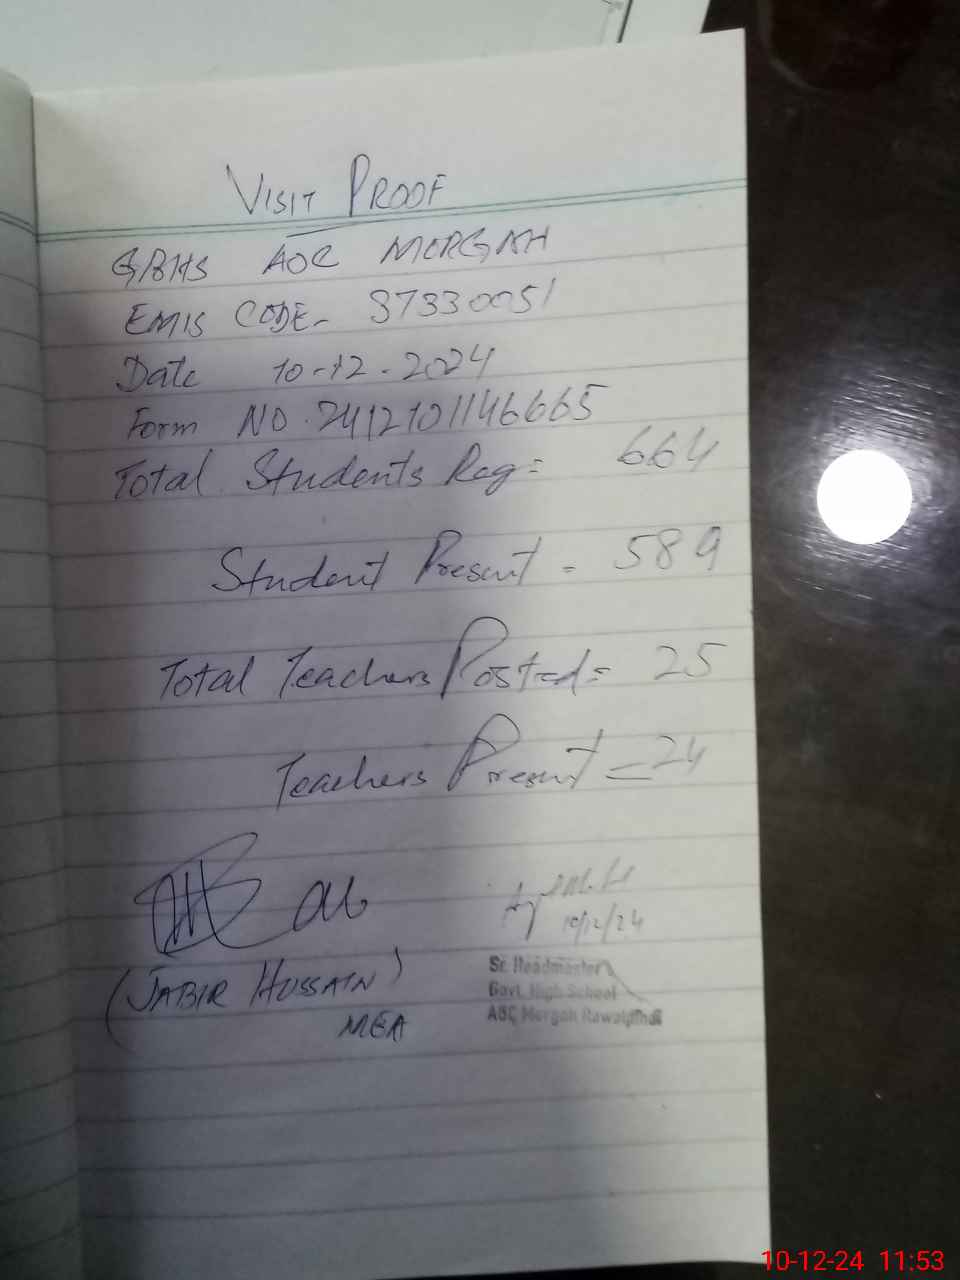 VISIT PROOF
GBHS AOC MORGAH
EMIS CODE- 37330051
Date 10-12-2024
Form NO. 2412101146665
Total Students Reg = 664
Student Present = 589
Total Teachers Posted = 25
Teachers Present = 24
10/12/24
(JABIR HUSSAIN)
MEA
Sr. Headmaster
Govt. High School
AOC Morgah Rawalpindi
10-12-24 11:53